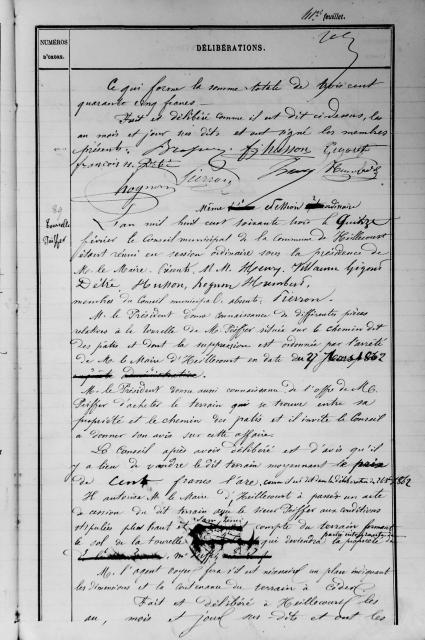 feuillet.
NUMÉROS
D'ORDRE.
DÉLIBÉRATIONS.
Ce qui forme la somme totale de trois cent
quarante cinq francs —
Fait et délibéré comme il est dit ci-dessus, les
an mois et jour sus dits et ont signé les membres
présents.
Même session ordinaire
Tourelle
Peiffer
L'an mil huit cent soixante trois le Quinze
février le Conseil municipal de la Commune de Heillecourt
étant réuni en session ordinaire sous la présidence de
M. le Maire. Présents M.M. Henry, Villaume
Husson, Humbert,
membres du Conseil municipal. absent. Pierron.
M. le Président donne connaissance de différentes pièces
relatives à la tourelle de M. Peiffer située sur le chemin dit
des patis et dont la suppression est ordonnée par l'arrêté
de M. le Maire d'Heillecourt en date du 27 1862
M. le Président donne aussi connaissance de l'offre de M.
Peiffer d'acheter le terrain qui se trouve entre sa
propriété et le chemin des patis et il invite le Conseil
à donner son avis sur cette affaire.
Le Conseil après avoir délibéré est d'avis qu'il
y a lieu de vendre le dit terrain moyennant le prix
de Cent francs l'are, 1862
Il autorise M. le Maire d'Heillecourt à passer un acte
de cession du dit terrain avec le sieur Peiffer aux conditions
stipulées plus haut et sans tenir compte du terrain formant
le sol de la tourelle qui deviendra la propriété de
partie intégrante
M. l'agent voyer fera s'il est nécessaire un plan indiquant
les dimensions et la contenance du terrain à céder.
Fait et délibéré à Heillecourt les
an, mois et jour sus dits et ont les